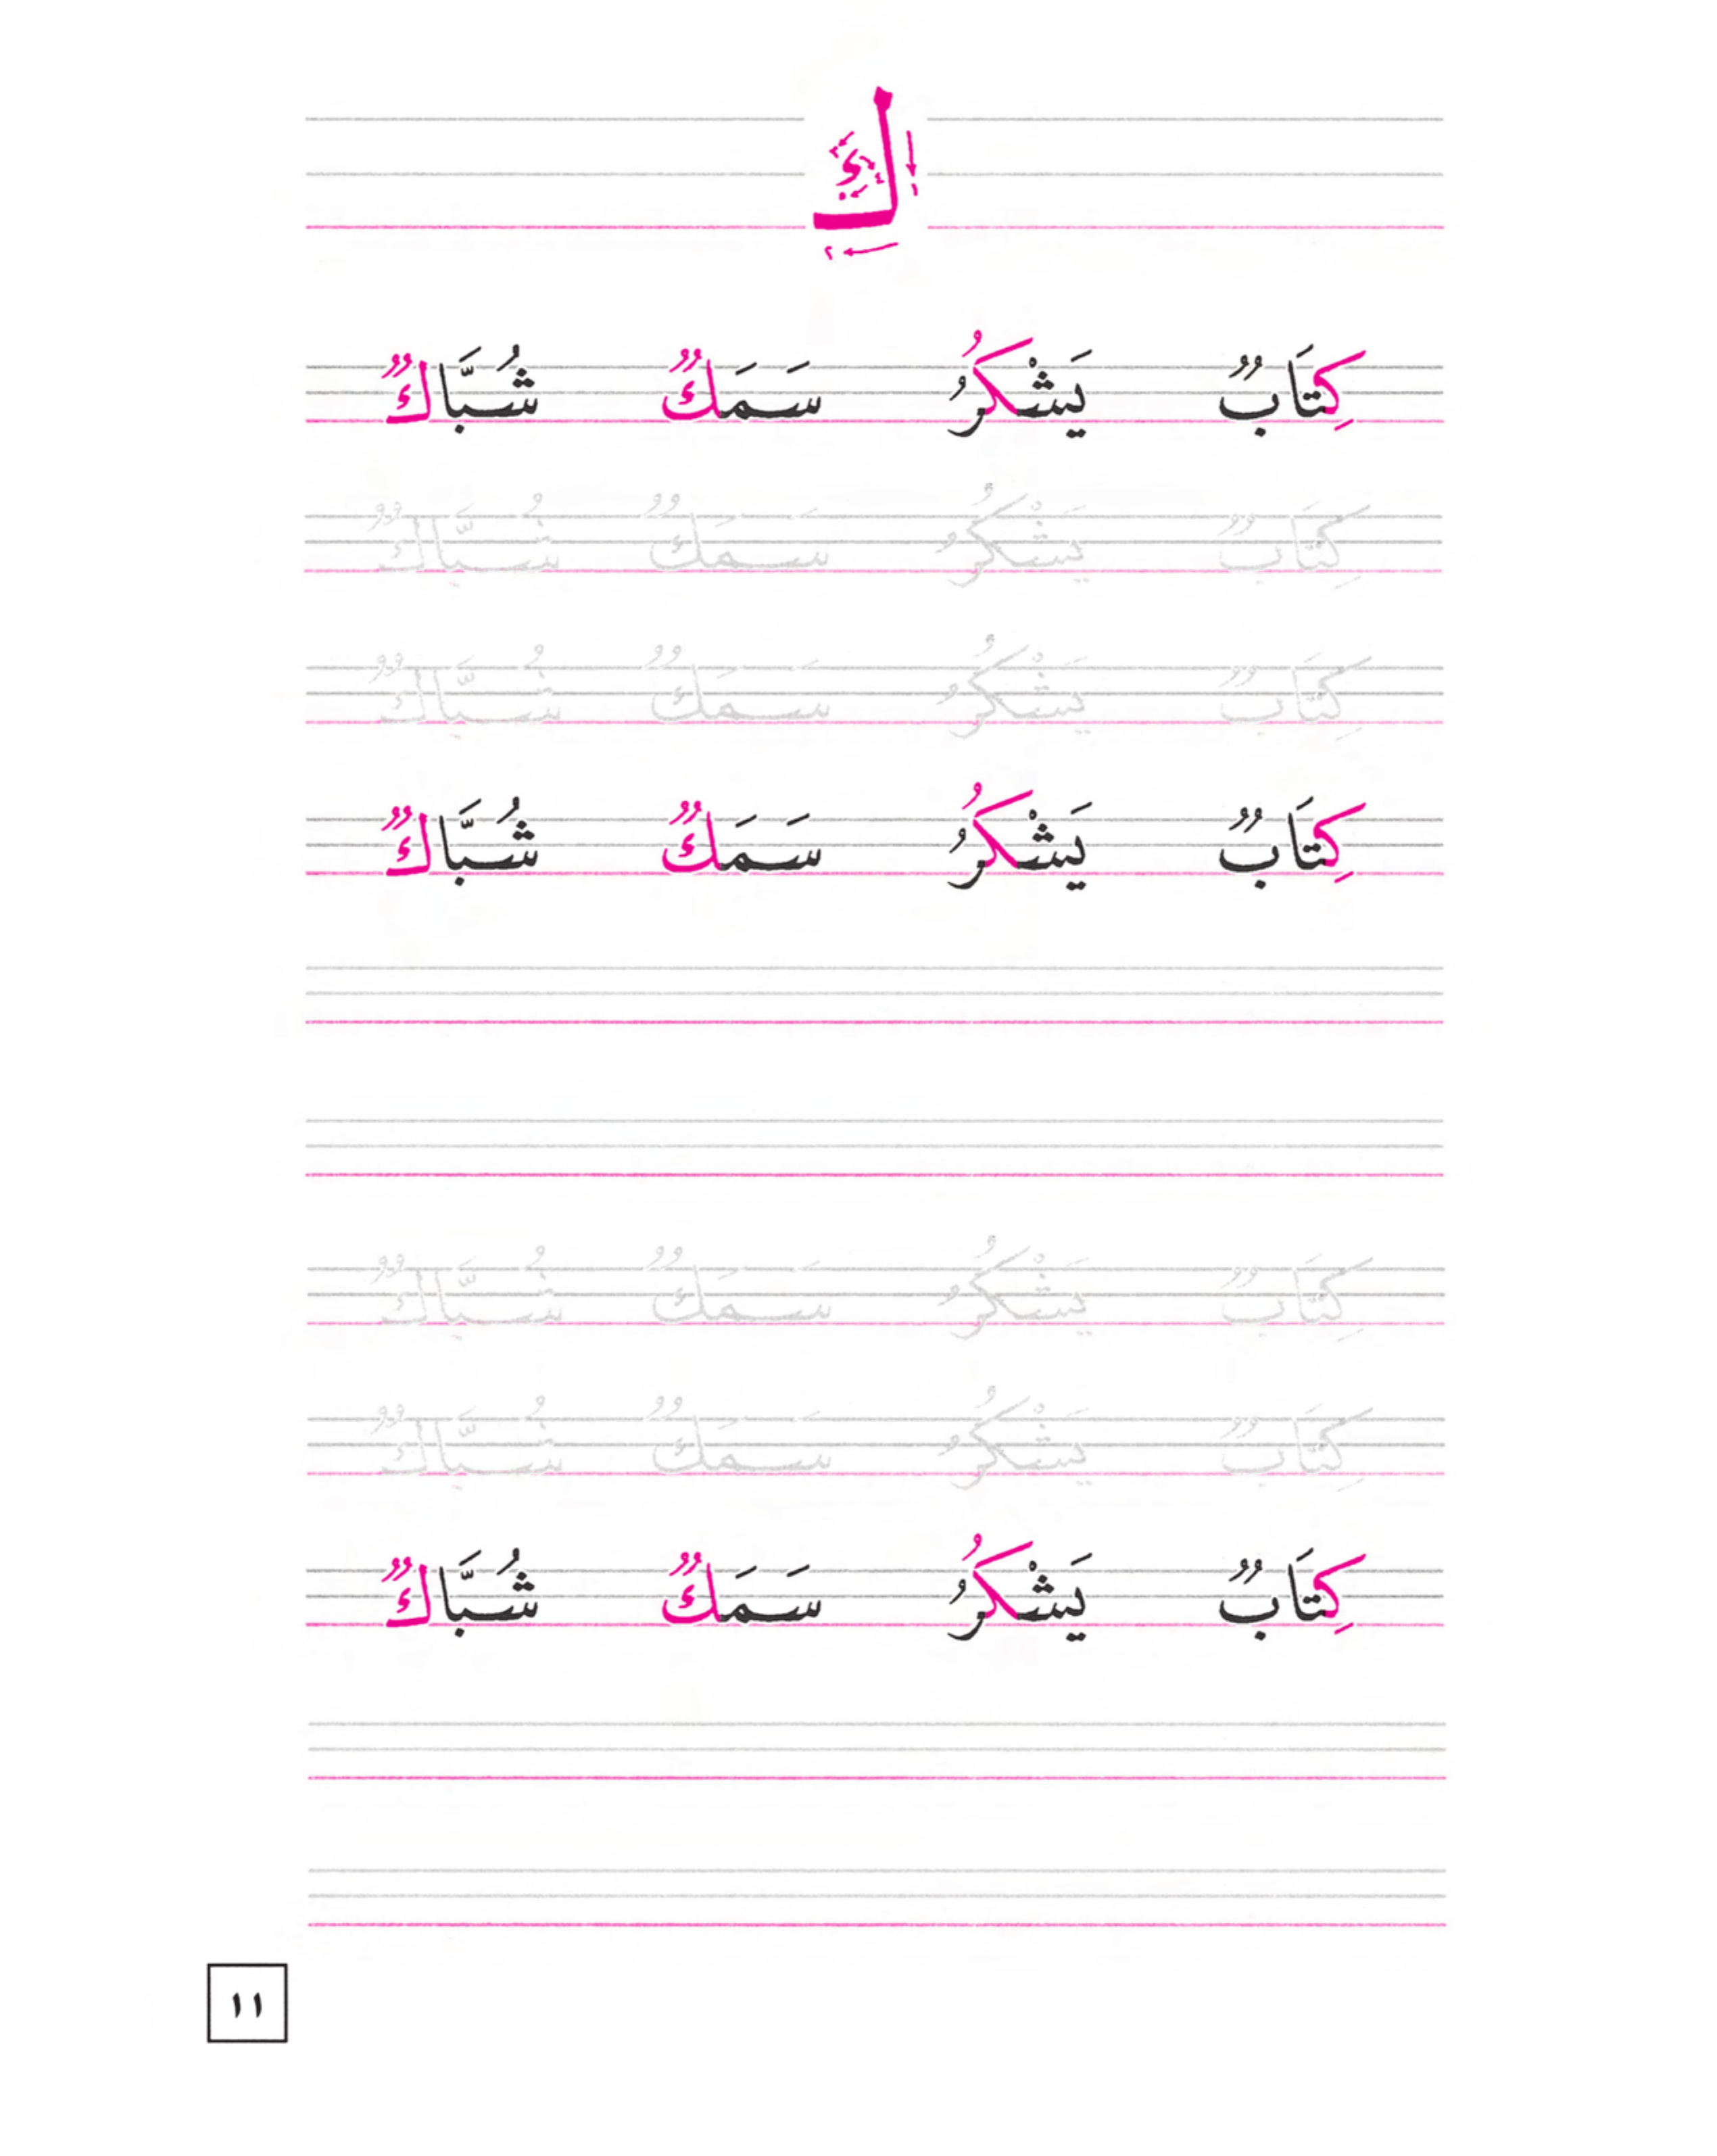 ك
١
٢
٣
٤
٥
كِتَابٌ يَشْكُرُ سَمَكٌ شُبَّاكٌ
كِتَابٌ يَشْكُرُ سَمَكٌ شُبَّاكٌ
كِتَابٌ يَشْكُرُ سَمَكٌ شُبَّاكٌ
كِتَابٌ يَشْكُرُ سَمَكٌ شُبَّاكٌ
كِتَابٌ يَشْكُرُ سَمَكٌ شُبَّاكٌ
كِتَابٌ يَشْكُرُ سَمَكٌ شُبَّاكٌ
كِتَابٌ يَشْكُرُ سَمَكٌ شُبَّاكٌ
١١